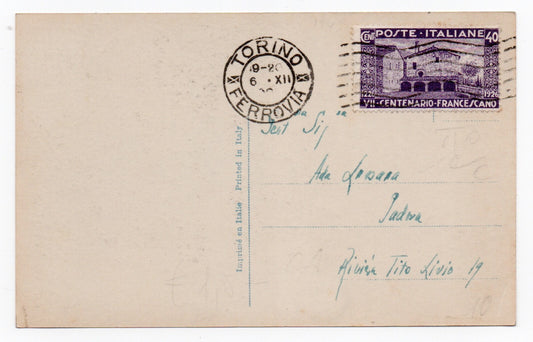 POSTE · ITALIANE
CENT 40
1226 1926
VII CENTENARIO FRANCESCANO
TORINO
19-20
6 · XII
FERROVIA
Gent Sig
Ada
Padova
Riviera Tito Livio 19
Imprimé en Italie . Printed in Italy